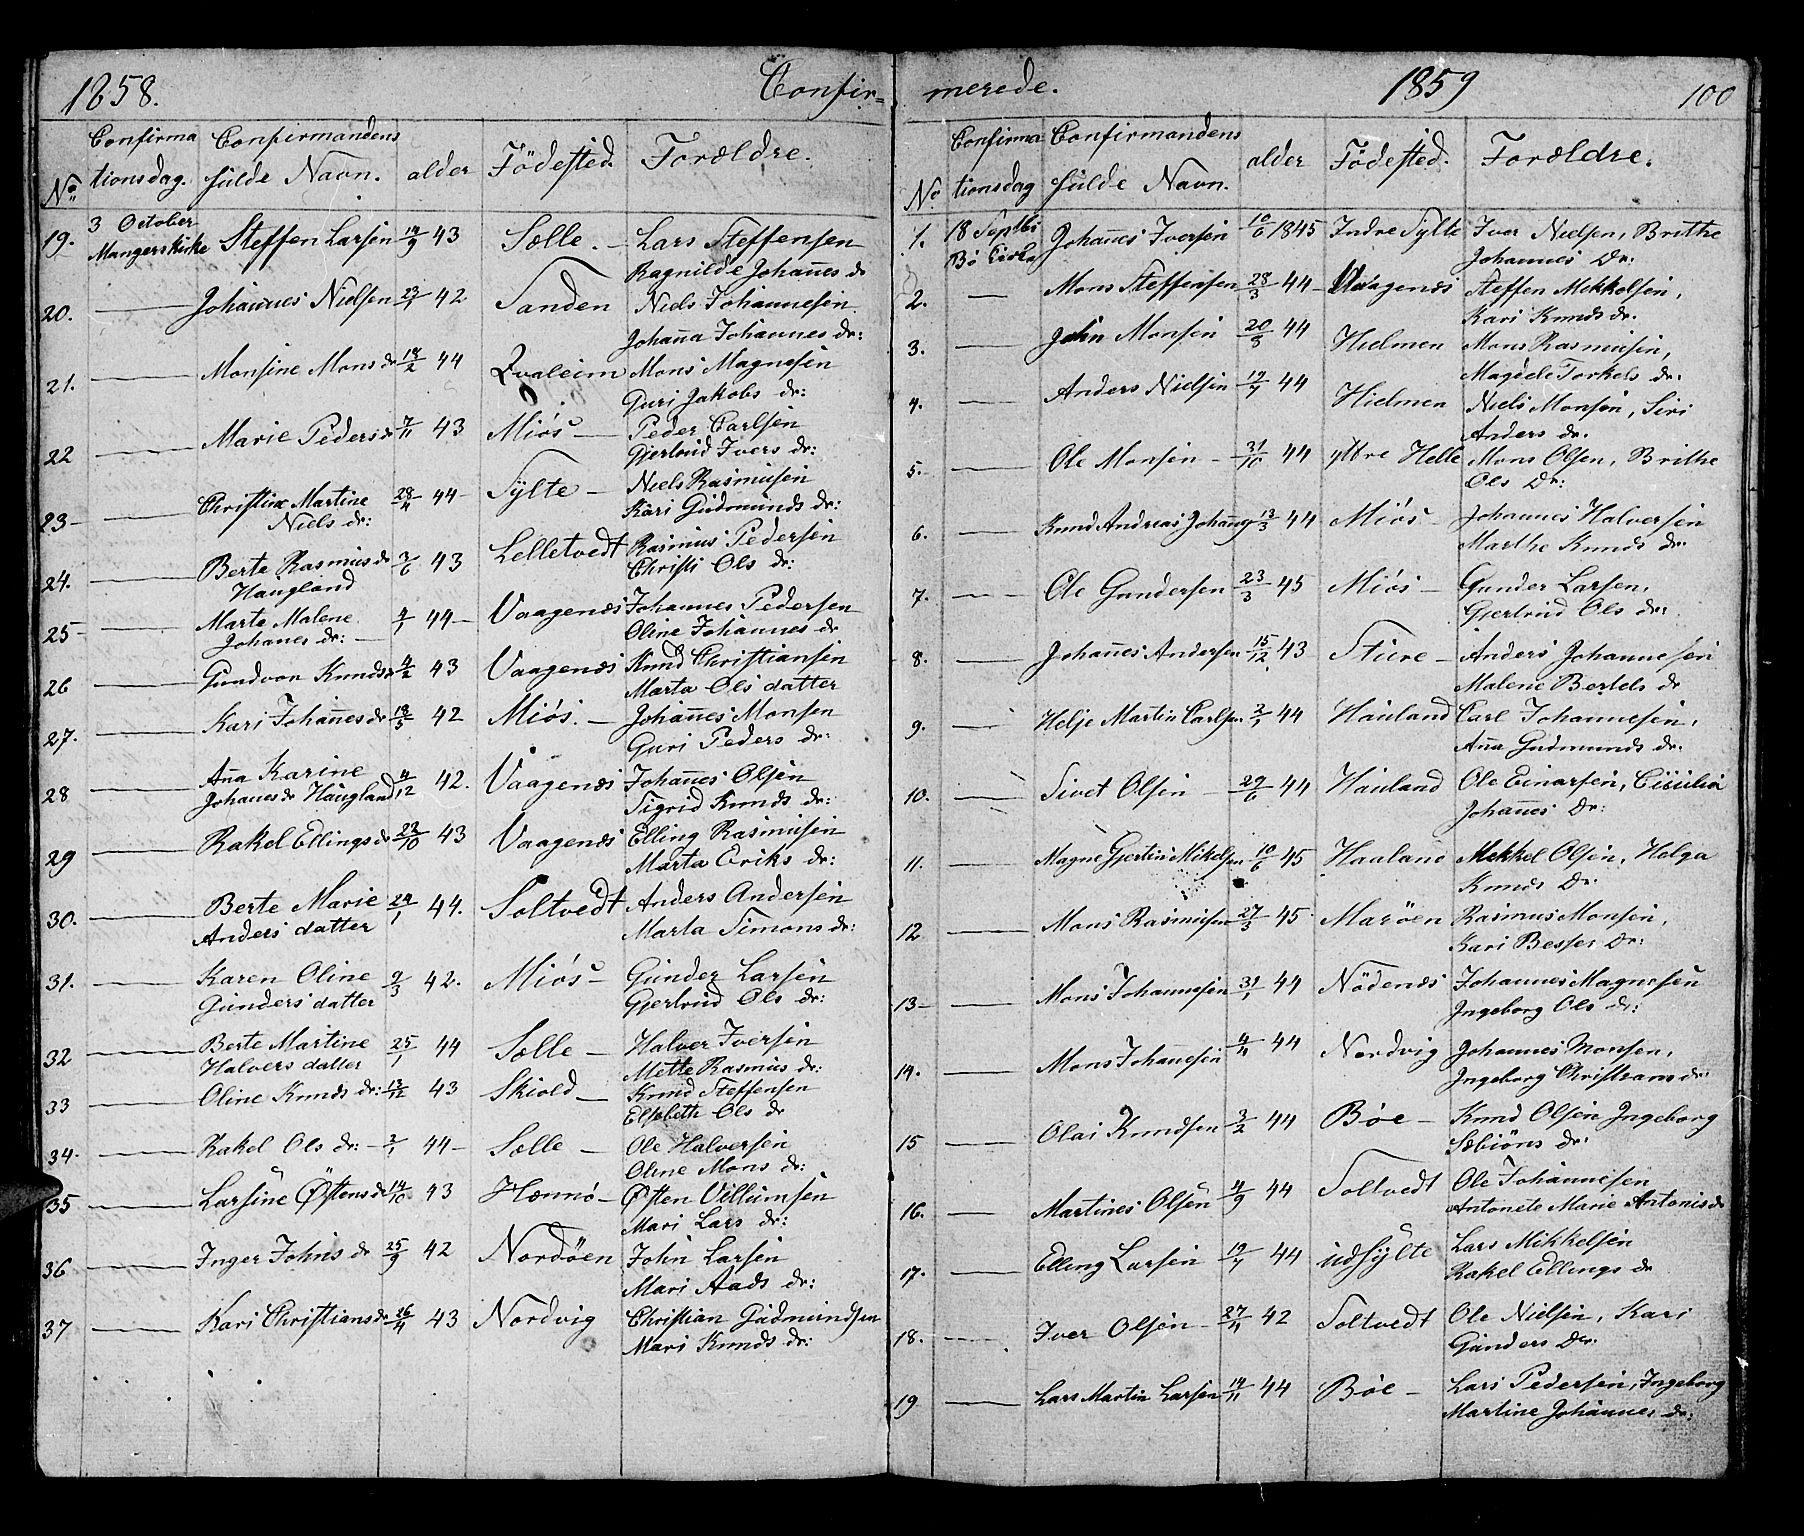 1858. Confir-
Confirma Confirmandens
No tionsdag. fulde Navn. alder Födested. Forældre.
3 October
19. Mangerskirke Steffen Larsen 14/9 43 Sælle. Lars Steffensen
Ragnilde Johañes dr
20. Johannes Nielsen 23/1 42 Sanden Niels Johannesen
Johaña Johannes dr:
21. Monsine Mons dr 18/2 44 Qvaleim Mons Magnesen
Guri Jakobs dr:
22 Marie Peders dr 7/11 43 Miós Peder Carlsen
Gjertrud Ivers dr:
23 Christine Martine 28/4 44 Sylte Niels Rasmusen
Niels dr: Kari Gudmunds dr:
24. Berte Rasmus dr 3/6 43 Lelletvedt Rasmus Pedersen
Haugland Christi Ols dr:
25 Marte Malene 4/1 44 Vaagenæs Johannes Pedersen
Johanes dr: Oline Johannes dr
26 Gundvor Knuds dr 4/2 43 Vaagenæs Knud Christiansen
Marta Ols datter
27. Kari Johañes dr 18/5 42 Miós. Johañes Monsen
Guri Peders dr:
28 Aña Karine 4/12 42. Vaagenæs Johañes Olsen
Johanes dr Haugland Sigrid Knuds dr:
29 Rakel Ellings dr 22/10 43 Vaagenæs Elling Rasmusen
Marta Eriks dr:
30. Berte Marie 24/1 44. Soltvedt Anders Andersen
Anders datter Marta Simons dr:
31. Karen Oline 2/3 42. Miós Gunder Larsen
Gunders datter Gjertrud Ols dr:
32 Berte Martine 25/1 44 Sælle Halver Iversen
Halvers datter Mette Rasmus dr:
33 Oline Knuds dr: 13/12 43 Skiold Knud Steffensen
Elsebeth Ols dr
34. Rakel Ols dr: 2/1 44 Sælle Ole Halversen
Oline Mons dr:
35 Larsine Østens dr 14/10 43 Hænnó Østen Villumsen
Mari Lars dr:
36 Inger Johns dr 25/9 42 Nordöen John Larsen
Mari Aads dr:
37 Kari Christians dr 26/4 43 Nordvig Christian Gudmundsen
Mari Knuds dr:
merede. 1859 100
Confirma Confirmandens
No tionsdag fulde Navn. alder Födested. Forældre.
1. 18 Septbr Johañes Iversen 10/6 1845 Indre Sylte Iver Nielsen, Brithe
Bö Johannes Dr:
2. Mons Steffensen 28/3 44 Vaagenæs Steffen Mikkelsen,
Kari Knuds dr.
3. John Monsen 20/8 44 Hielmen Mons Rasmusen,
Magdele Torkels dr.
4. Anders Nielsen 19/7 44 Hielmen Niels Monsen, Siri
Anders dr.
5. Ole Monsen 31/10 44 Yttre Helle Mons Olsen, Brithe
Ols Dr:
6. Knud Andreas Johañes 13/3 44 Miós Johannes Halversen
Marthe Knuds dr.
7. Ole Gundersen 23/3 45 Miós Gunder Larsen,
Gjertrud Ols dr:
8. Johañes Andersen 15/12 43 Sture Anders Johannesen
Malene Bertels dr
9. Helje Martin Carlsen 2/1 44 Hauland Carl Johannesen,
Aña Gudmunds dr.
10. Sivet Olsen 29/6 44 Hauland Ole Einarsen, Cicilia
Johañes Dr:
11. Magne Gjertin Mikelsen 10/6 45 Haaland Mikkel Olsen, Helga
Knuds Dr.
12 Mons Rasmusen 27/3 45 Maröen Rasmus Monsen,
Kari Besser Dr:
13 Mons Johannesen 31/1 44 Nödenæs Johannes Magnesen
Ingeborg Ols dr:
14. Mons Johanesen 4/4 44 Nordvig Johannes Monsen,
Ingeborg Christians dr:
15 Olai Knudsen 3/2 44 Böe Knud Olsen Ingeborg
Sæbiöns dr:
16. Martines Olsen 4/9 44 Soltvedt Ole Johannesen
Antonete Marie Antonis dr
17. Elling Larsen 19/7 44 udsylte Lars Mikkelsen
Rakel Ellings dr
18. Iver Olsen 27/11 42 Soltvedt Ole Nielsen, Kari
Gunders Dr.
19 Lars Martin Larsen 14/11 44 Böe Lars Pedersen, Ingeborg
Martine Johannes dr: